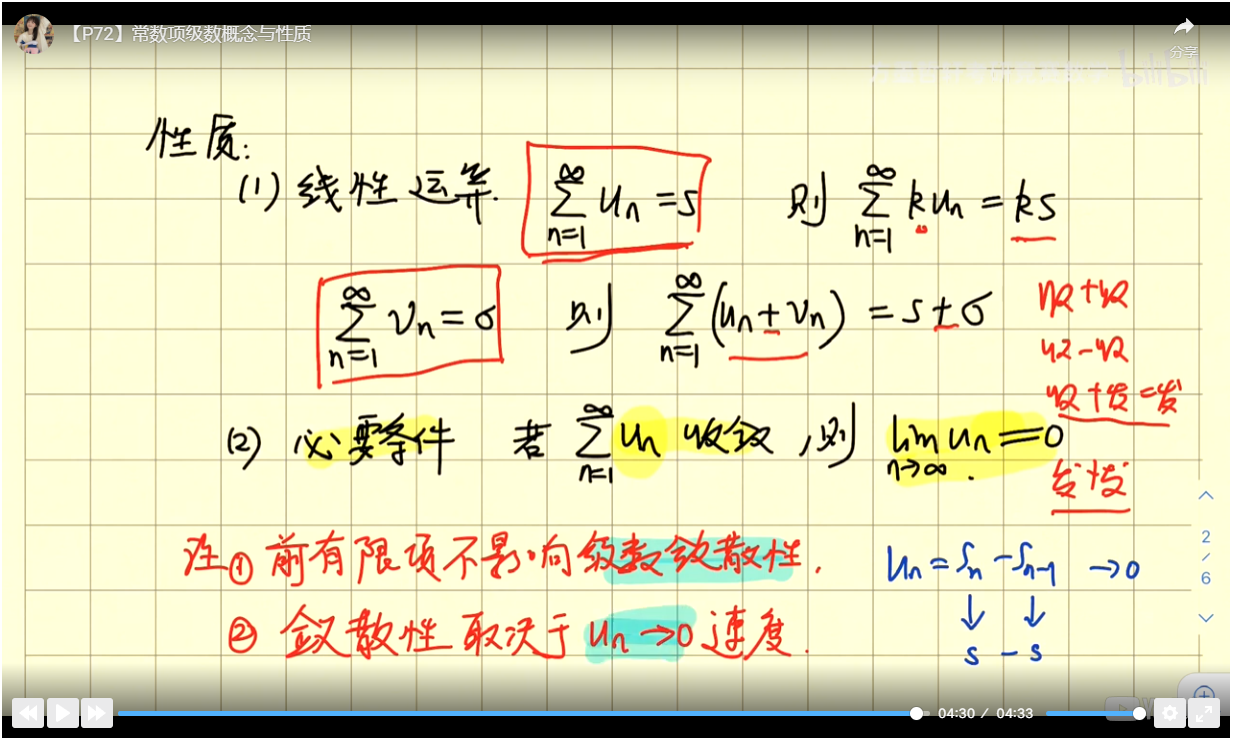 【P72】常数项级数概念与性质
分享
bilibili
性质:
(1) 线性运算. ∞∑n=1 un = s 则 ∞∑n=1 kun = ks
∞∑n=1 vn = σ 则 ∞∑n=1 (un ± vn) = s ± σ
收+收
收-收
收+发=发
发+发
(2) 必要条件 若 ∞∑n=1 un 收敛, 则 lim n→∞ un = 0.
注 ① 前有限项不影响级数敛散性.
② 敛散性取决于 un→0 速度.
un = Sn - Sn-1 → 0
↓ ↓
s - s
2
/
6
04:30 / 04:33